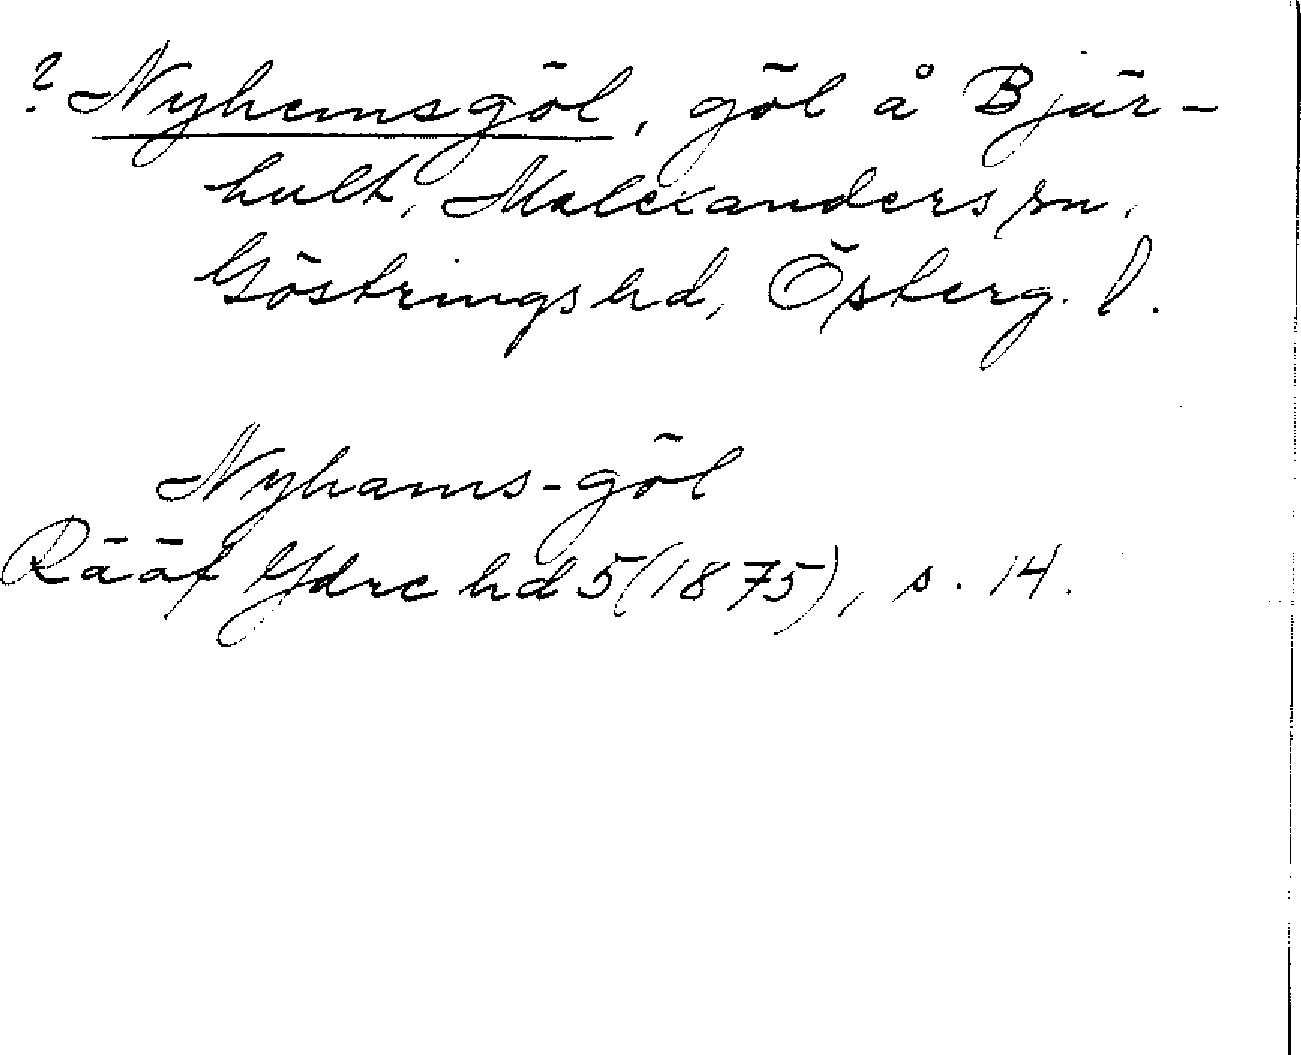 ? Nyhemsgöl, göl å Bjär-
hult, Malexanders sn,
Göstrings hd, Österg. l.
Nyhams-göl
Rääf Ydre hd 5 (1875), s. 14.